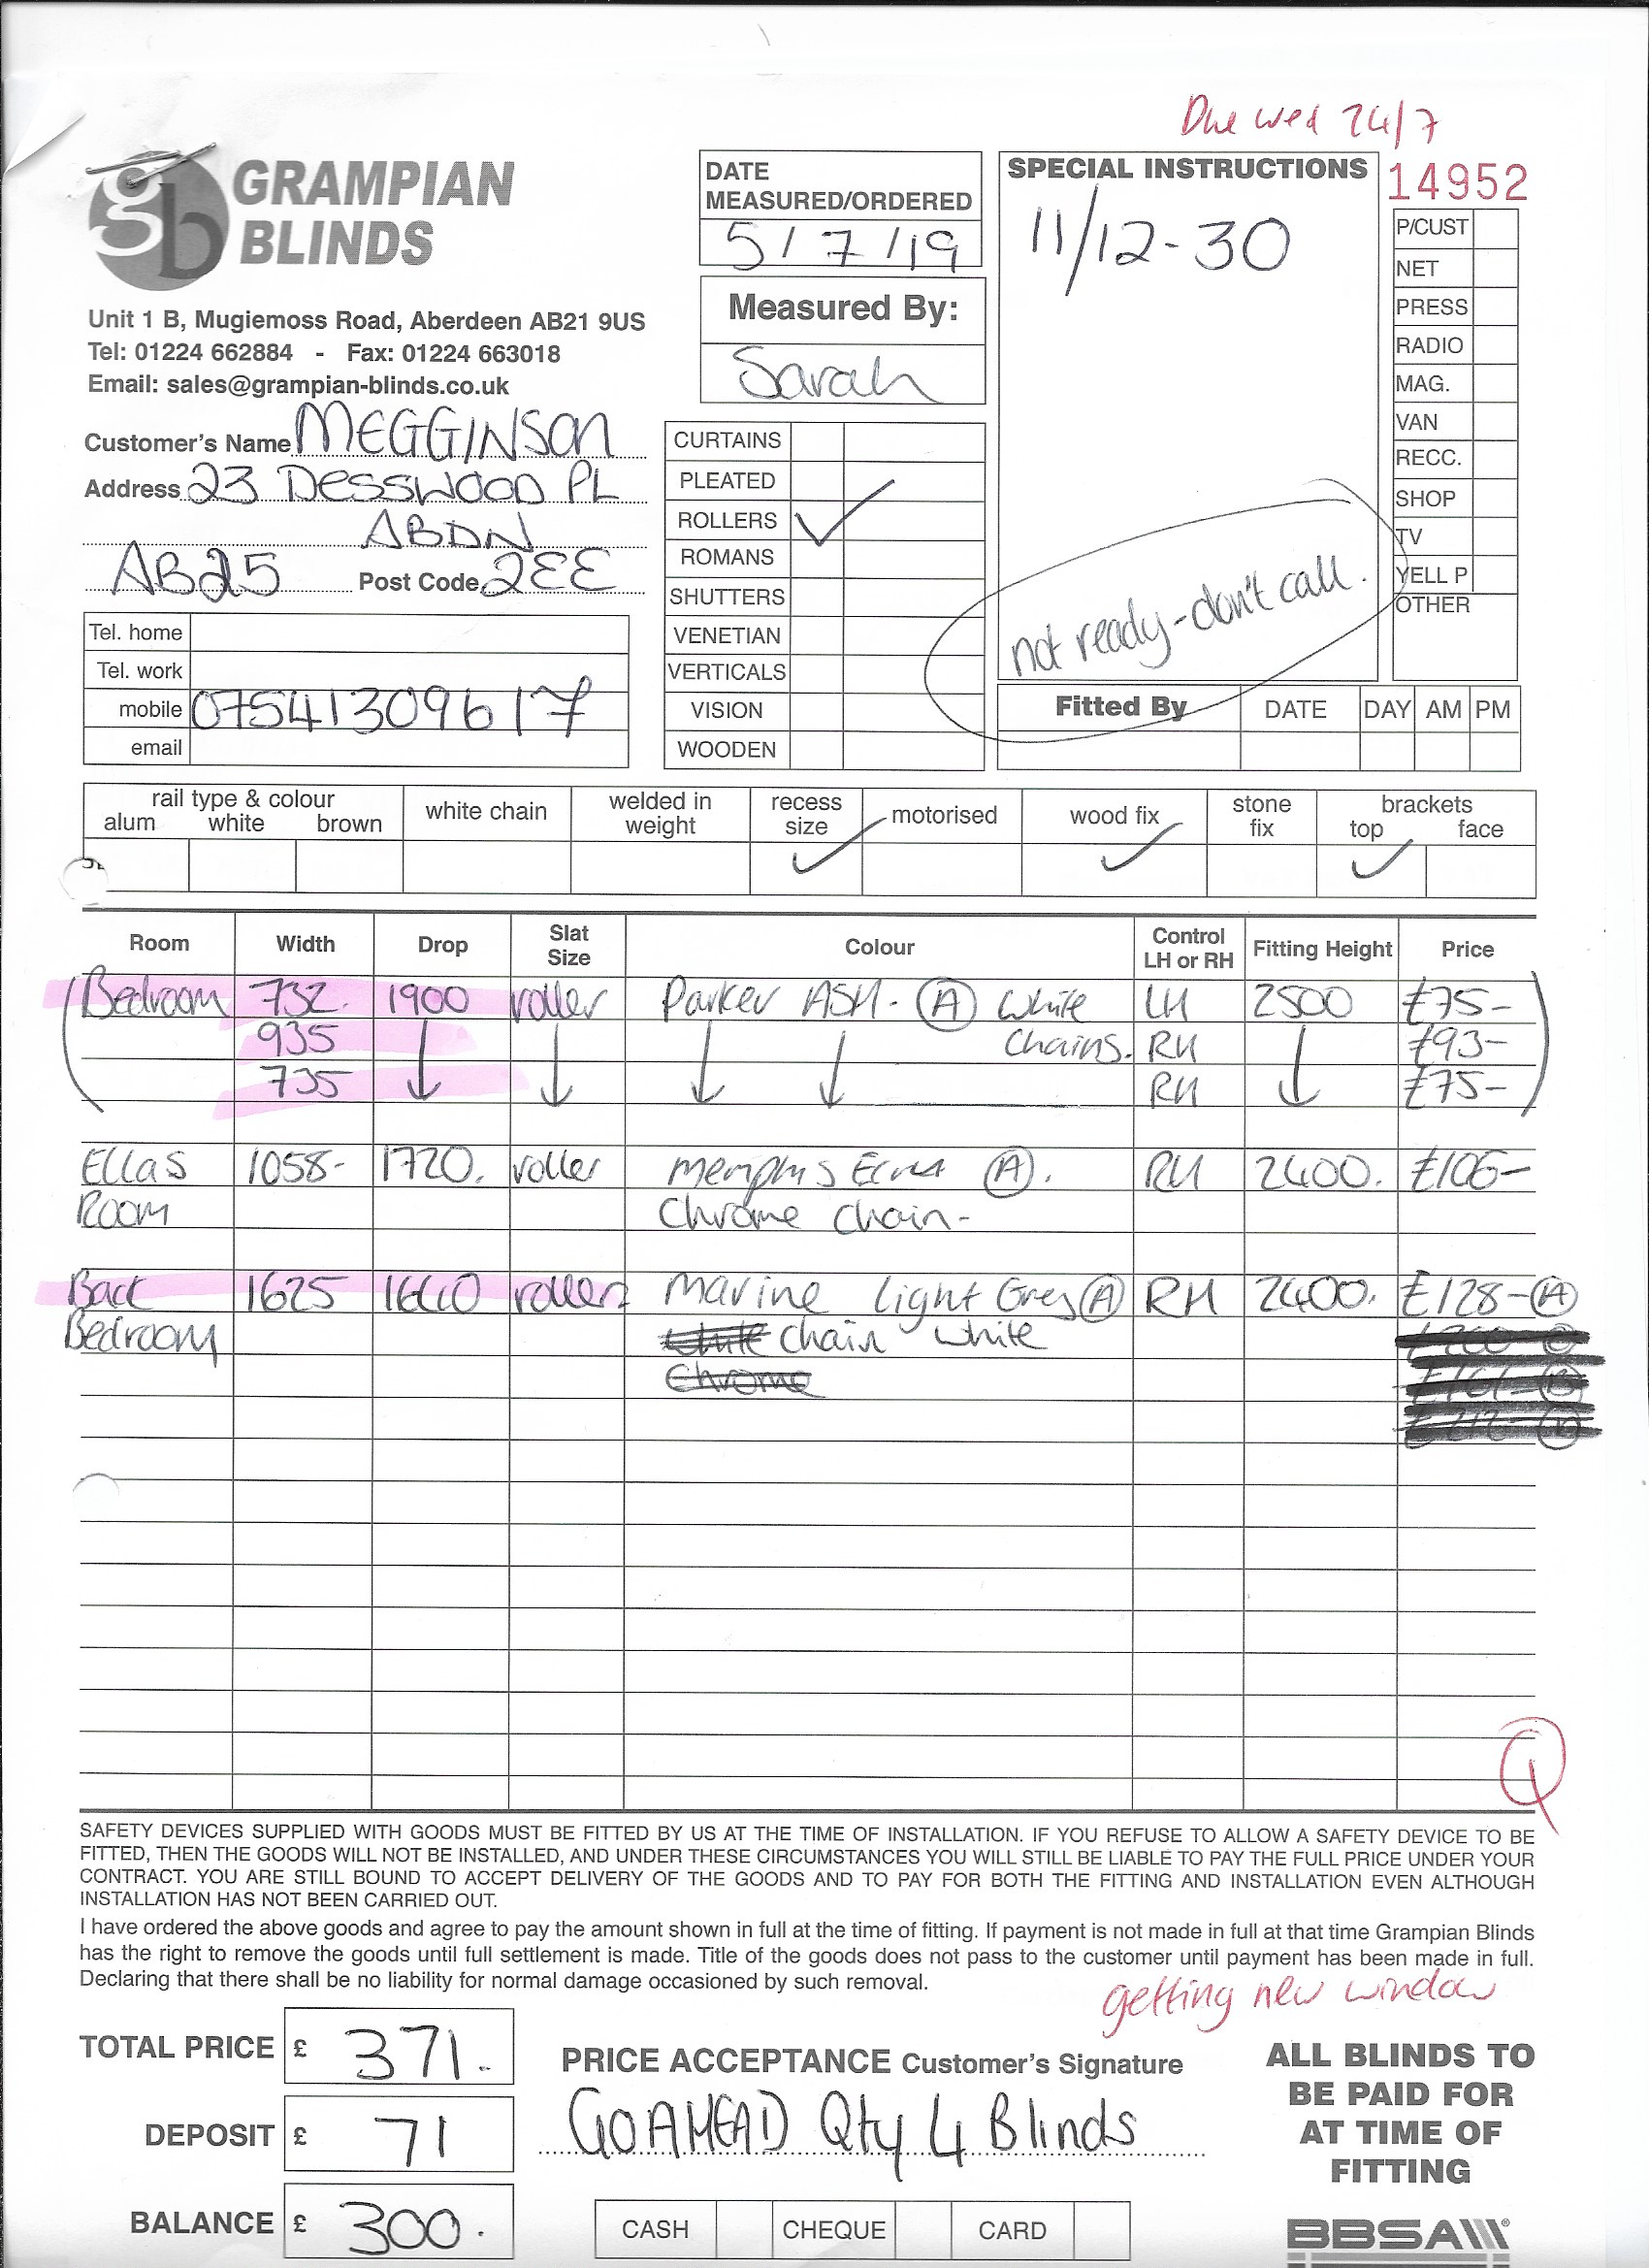 Due wed 24/7
gb GRAMPIAN
BLINDS
Unit 1 B, Mugiemoss Road, Aberdeen AB21 9US
Tel: 01224 662884 - Fax: 01224 663018
Email: sales@grampian-blinds.co.uk
Customer's Name MEGGINSON
Address 23 DESSWOOD PL
ABDN
AB25 Post Code 2EE
Tel. home
Tel. work
mobile 07541309617
email
DATE
MEASURED/ORDERED
5/7/19
Measured By:
Sarah
CURTAINS
PLEATED
ROLLERS ✓
ROMANS
SHUTTERS
VENETIAN
VERTICALS
VISION
WOODEN
SPECIAL INSTRUCTIONS
11/12-30
not ready - don't call.
14952
P/CUST
NET
PRESS
RADIO
MAG.
VAN
RECC.
SHOP
TV
YELL P
OTHER
Fitted By DATE DAY AM PM
rail type & colour
alum white brown
white chain
welded in
weight
recess
size ✓
motorised
wood fix ✓
stone
fix
brackets
top face
✓
Room Width Drop Slat Size Colour Control LH or RH Fitting Height Price
Bedroom 732. 1900 roller Parker ASH - A White LH 2500 £75-
935 Chains. RH £93-
735 RH £75-
Ellas 1058- 1720. roller Memphis A. RH 2400. £106-
Room Chrome Chain-
Back 1625 1640 roller Marine light Grey A RH 2400. £128- A
Bedroom white chain white
Chrome
Q
SAFETY DEVICES SUPPLIED WITH GOODS MUST BE FITTED BY US AT THE TIME OF INSTALLATION. IF YOU REFUSE TO ALLOW A SAFETY DEVICE TO BE
FITTED, THEN THE GOODS WILL NOT BE INSTALLED, AND UNDER THESE CIRCUMSTANCES YOU WILL STILL BE LIABLE TO PAY THE FULL PRICE UNDER YOUR
CONTRACT. YOU ARE STILL BOUND TO ACCEPT DELIVERY OF THE GOODS AND TO PAY FOR BOTH THE FITTING AND INSTALLATION EVEN ALTHOUGH
INSTALLATION HAS NOT BEEN CARRIED OUT.
I have ordered the above goods and agree to pay the amount shown in full at the time of fitting. If payment is not made in full at that time Grampian Blinds
has the right to remove the goods until full settlement is made. Title of the goods does not pass to the customer until payment has been made in full.
Declaring that there shall be no liability for normal damage occasioned by such removal.
getting new window
TOTAL PRICE £ 371.
DEPOSIT £ 71
BALANCE £ 300.
PRICE ACCEPTANCE Customer's Signature
GOAHEAD Qty 4 Blinds
CASH CHEQUE CARD
ALL BLINDS TO
BE PAID FOR
AT TIME OF
FITTING
BBSA